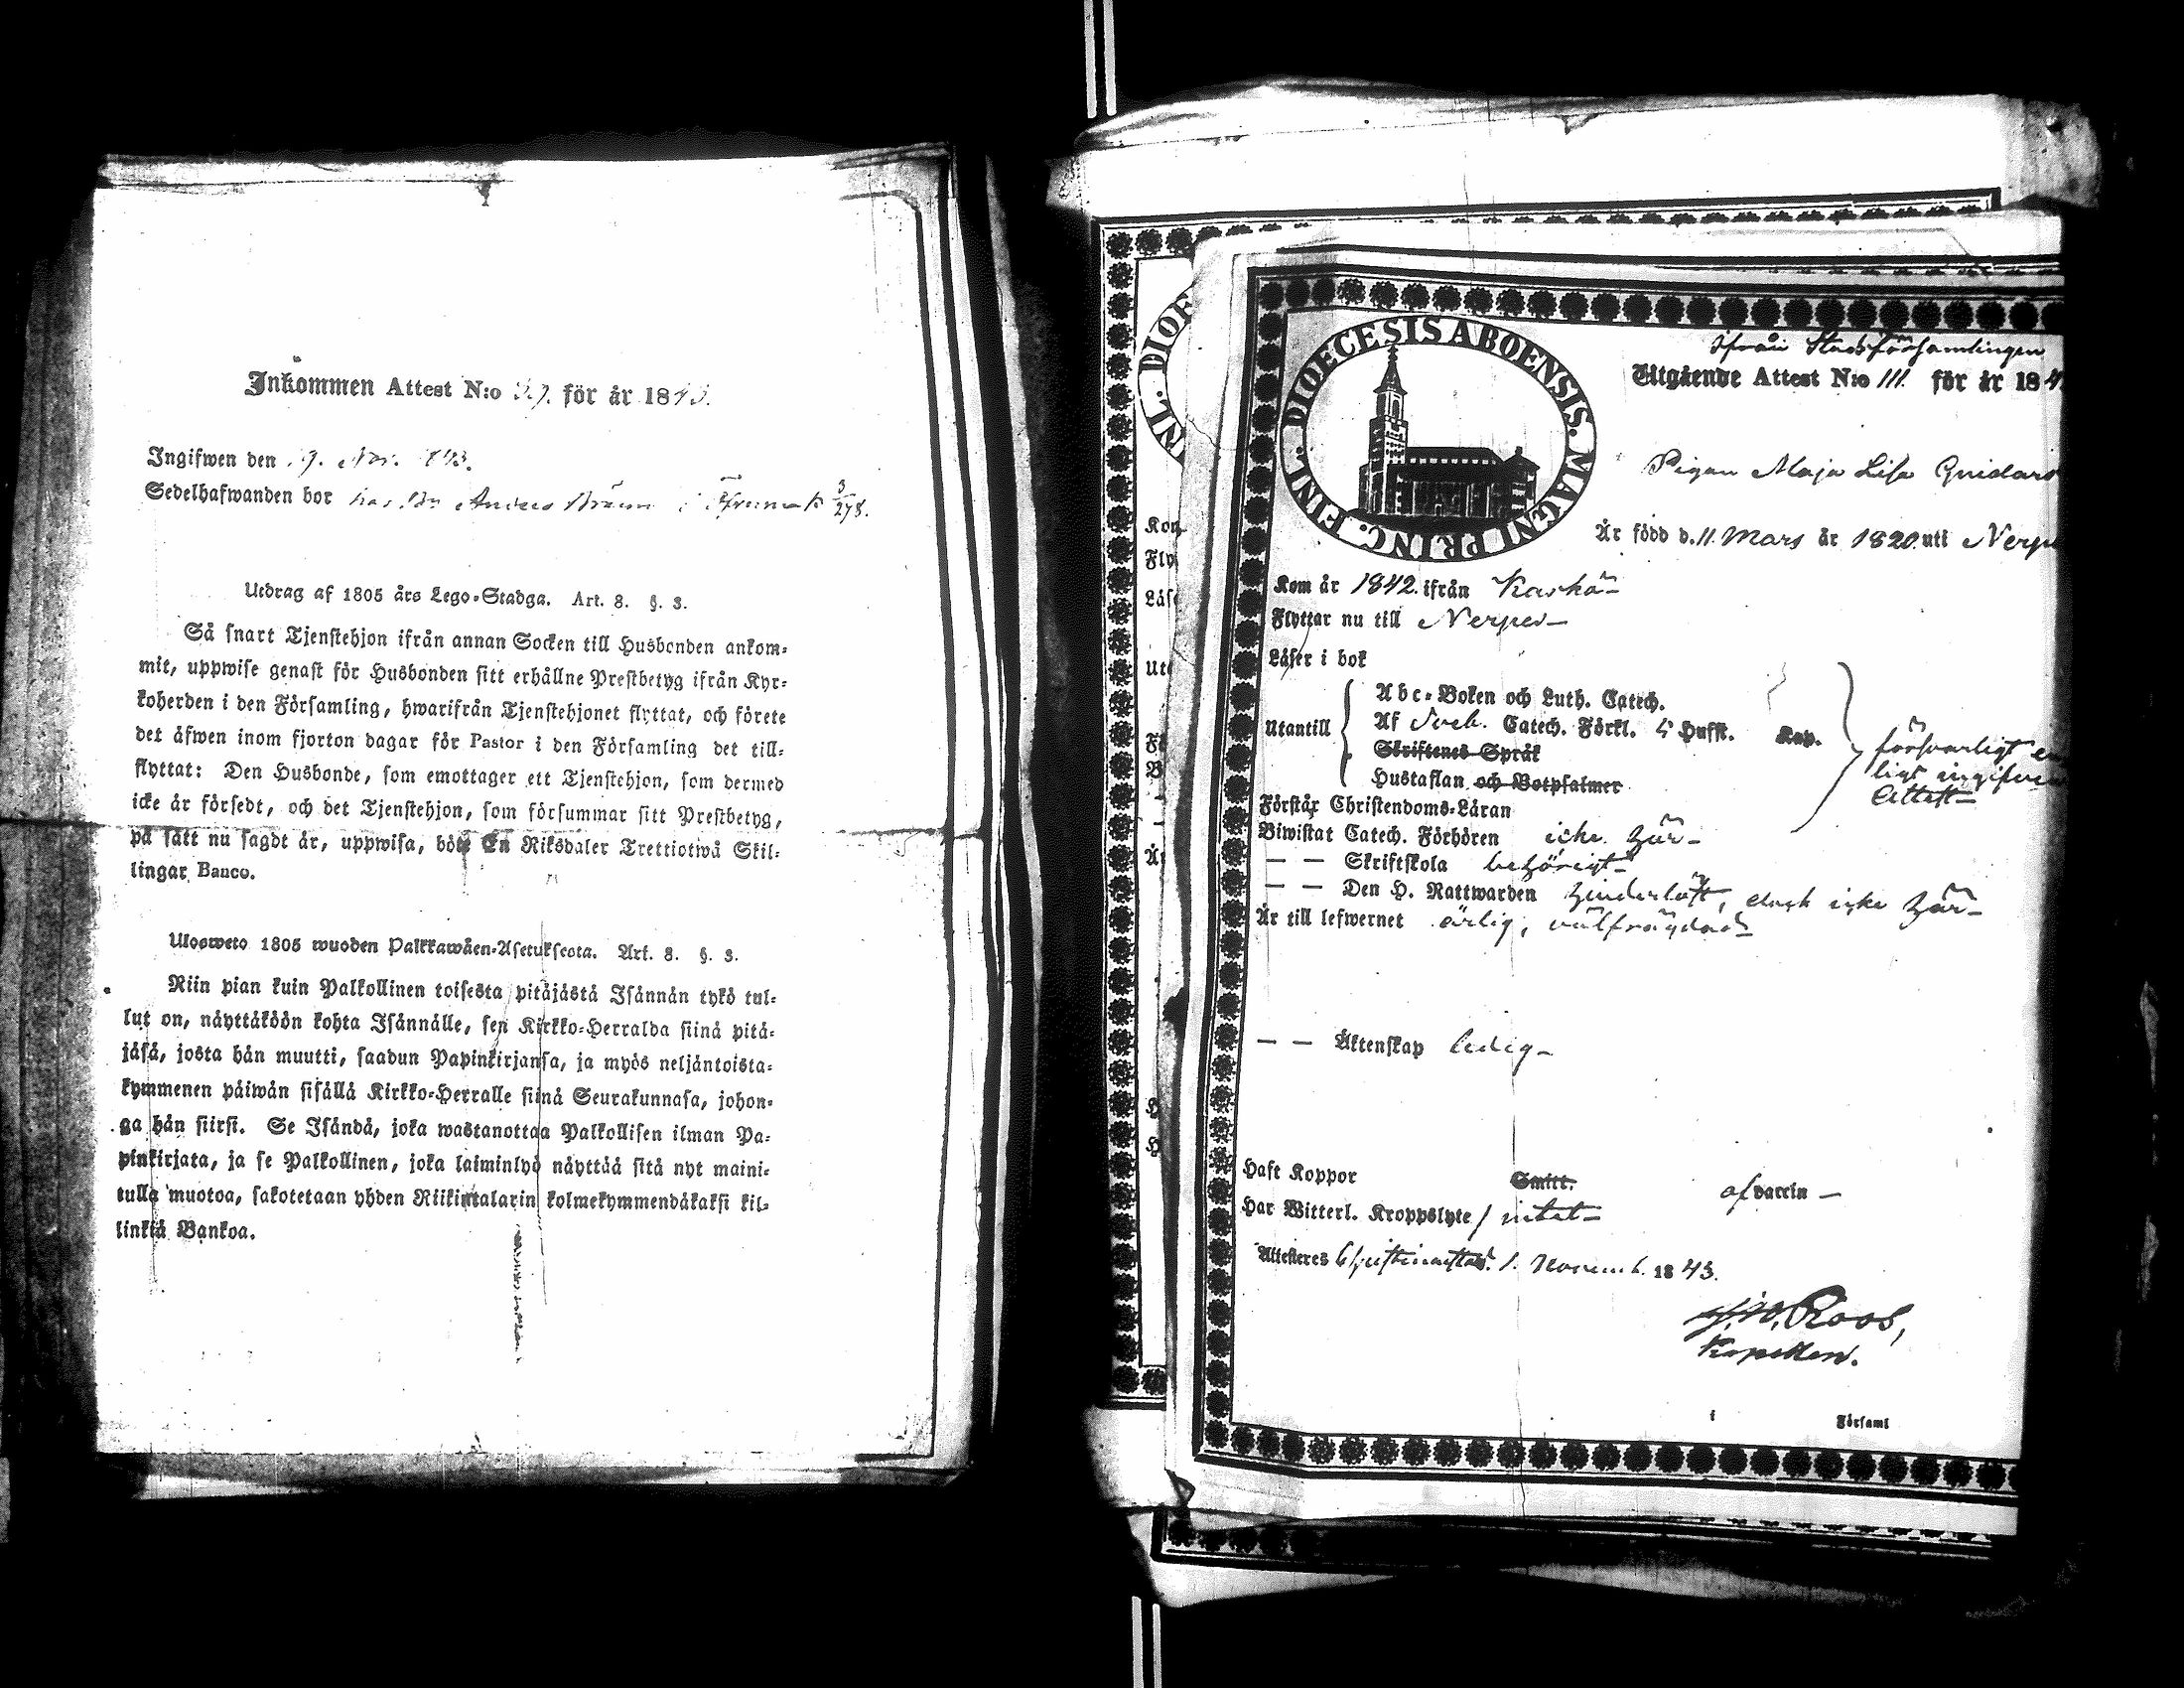 Inkommen Attest N:o 39. för år 1843.
Ingifwen den 19. Nov. 1843.
Sedelhafwanden bor hos Anders i 3/278.
Utdrag af 1805 års Lego-Stadga. Art. 8. §. 3.
Så snart Tjenstehjon ifrån annan Socken till Husbonden ankom-
mit, uppwise genast för Husbonden sitt erhållne Prestbetyg ifrån Kyr-
koherden i den Församling, hwarifrån Tjenstehjonet flyttat, och förete
det äfwen inom fjorton dagar för Pastor i den Församling det till-
flyttat: Den Husbonde, som emottager ett Tjenstehjon, som dermed
icke är försedt, och det Tjenstehjon, som försummar sitt Prestbetyg,
på sätt nu sagdt är, uppwisa, böte En Riksdaler Trettiotwå Skil-
lingar Banco.
Ulosweto 1805 wuoden Palkkawäen-Asetuksesta. Art. 8. §. 3.
Niin pian kuin Palkollinen toisesta pitäjästä Isännän tykö tul-
lut on, näyttäköön kohta Isännälle, sen Kirkko-Herralda siinä pitä-
jäsä, josta hän muutti, saadun Papinkirjansa, ja myös neljäntoista-
kymmenen päiwän sisällä Kirkko-Herralle siinä Seurakunnasa, johon-
ga hän siirsi. Se Isändä, joka wastanottaa Palkollisen ilman Pa-
pinkirjata, ja se Palkollinen, joka laiminlyö näyttää sitä nyt maini-
tulla muotoa, sakotetaan yhden Riikintalarin kolmekymmendäkaksi kil-
linkiä Bankoa.
DIOECESIS ABOENSIS. MAGNI PRINC. FINL.
ifrån Stadsförsamlingen
Utgående Attest N:o 111. för år 184
Pigan Maja Lisa
Är född d. 11. Mars år 1820. uti Nerpe
Kom år 1842. ifrån Kaskö
Flyttar nu till Nerpes
Läser i bok
Abc-Boken och Luth. Catech.
Utantill Af Sveb. Catech. Förkl. 5 Hufst. Kap.
Skriftenes Språk
Hustaflan och Botpsalmer
försvarligt en
ligt ingifven
Attest
Förstår Christendoms-Läran
Biwistat Catech. Förhören icke här
— — Skriftskola behörigt
— — Den H. Nattwarden hinderlöst, dock icke här
Är till lefwernet ärlig, välfrägdad
— — Äktenskap ledig
Haft Koppor Smitt. af vaccin —
Har Witterl. Kroppslyte / intet
Attesteres Christinestad. 1. Novemb. 1843.
Roos,
Kapellan.
i Församl